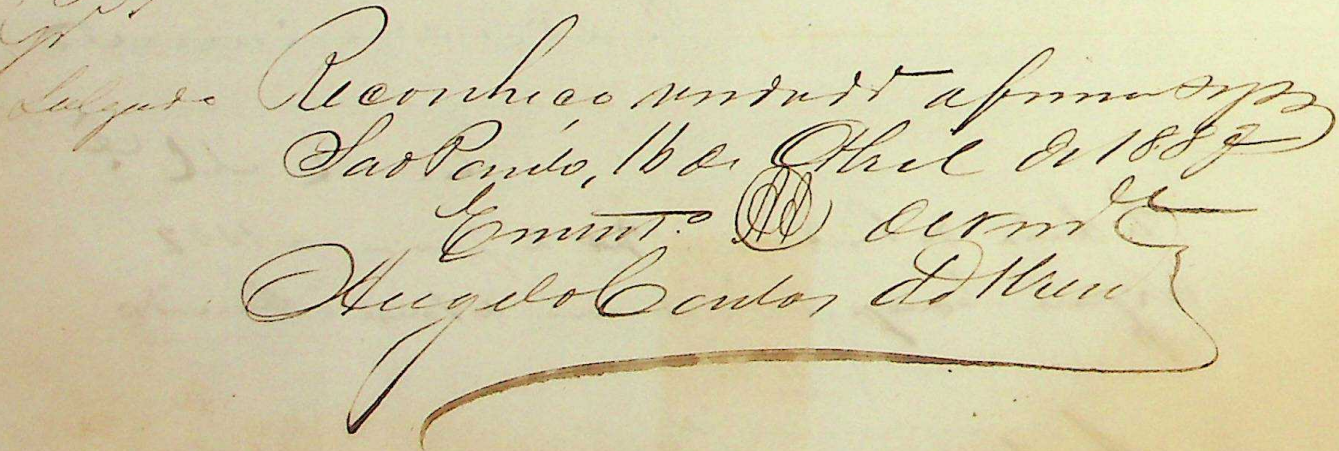 Gr.
Salgado
Reconheço verdad.ra a firma supra
São Paulo, 16 de Abril de 1887
Em test.o de verd.e
Angelo Carlos de Abreu